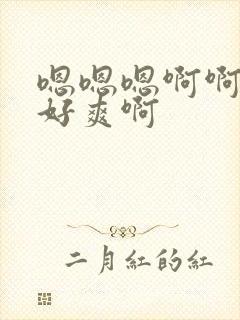 嗯嗯嗯啊啊
好爽啊
二月紅的紅